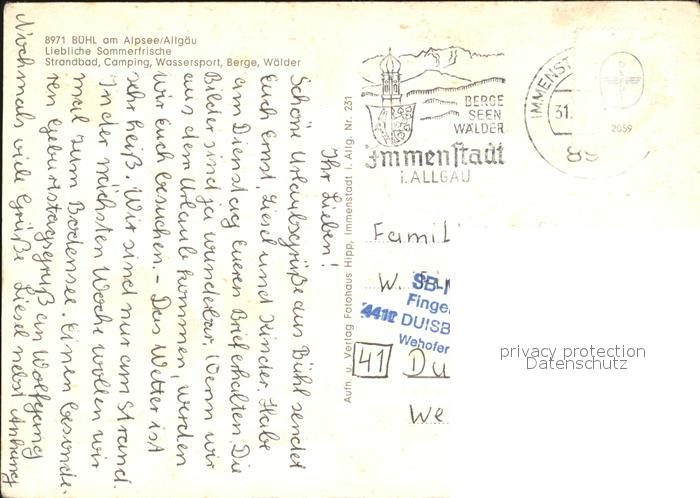 8971 BÜHL am Alpsee/Allgäu
Liebliche Sommerfrische
Strandbad, Camping, Wassersport, Berge, Wälder
Ihr Lieben!
Schöne Urlaubsgrüße aus Bühl sendet
Euch Ernst, Liesel und Kinder. Habe
am Dienstag Eueren Brief erhalten. Die
Bilder sind ja wunderbar. Wenn wir
aus dem Urlaube kommen, werden
wir Euch besuchen. - Das Wetter ist
sehr heiß. Wir sind nur am Strand.
In der nächsten Woche wollen wir
mal zum Bodensee. Einen besonde-
ren Geburtstagsgruß an Wolfgang
Nochmals viele Grüße Liesel nebst Anhang
Aufn. u. Verlag Fotohaus Hipp, Immenstadt i. Allg. Nr. 231
BERGE
SEEN
WÄLDER
Immenstadt
i. ALLGÄU
IMMENST
31.
2059
89
Famil
W.
SB-
Finge
441 DUISB
Wehofer
41 Du
We
privacy protection
Datenschutz